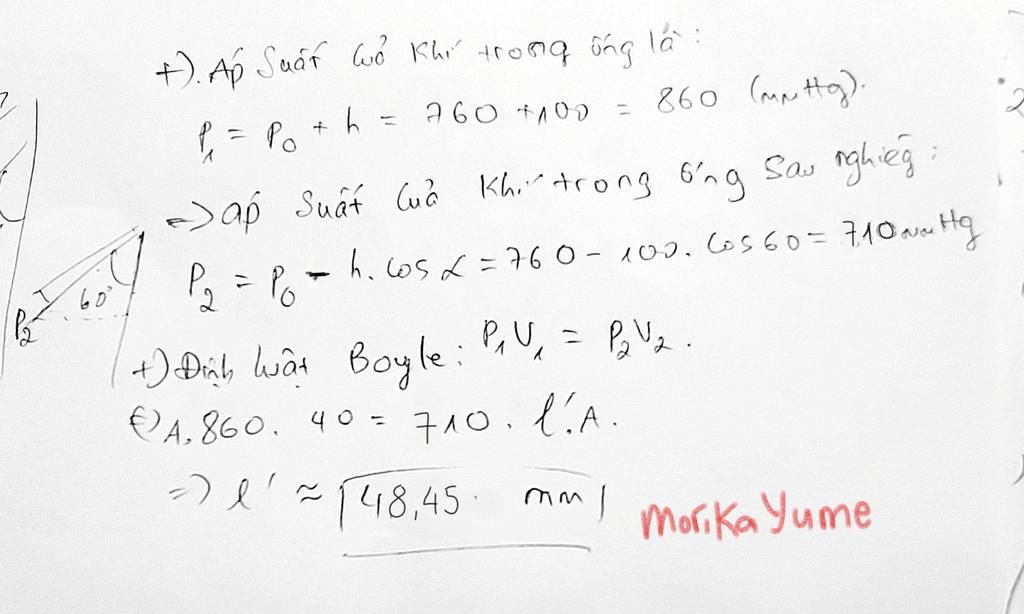 +). Áp suất của khí trong ống là:
P₁ = P₀ + h = 760 + 100 = 860 (mmHg).
=> áp suất của khí trong ống sau nghiêg:
P₂ = P₀ - h. cos α = 760 - 100. cos 60 = 710 mmHg
60°
P₂
+) Định luật Boyle: P₁V₁ = P₂V₂.
(=) A. 860. 40 = 710. l'.A.
=> l' ≈ 48,45 mm
Morika Yume